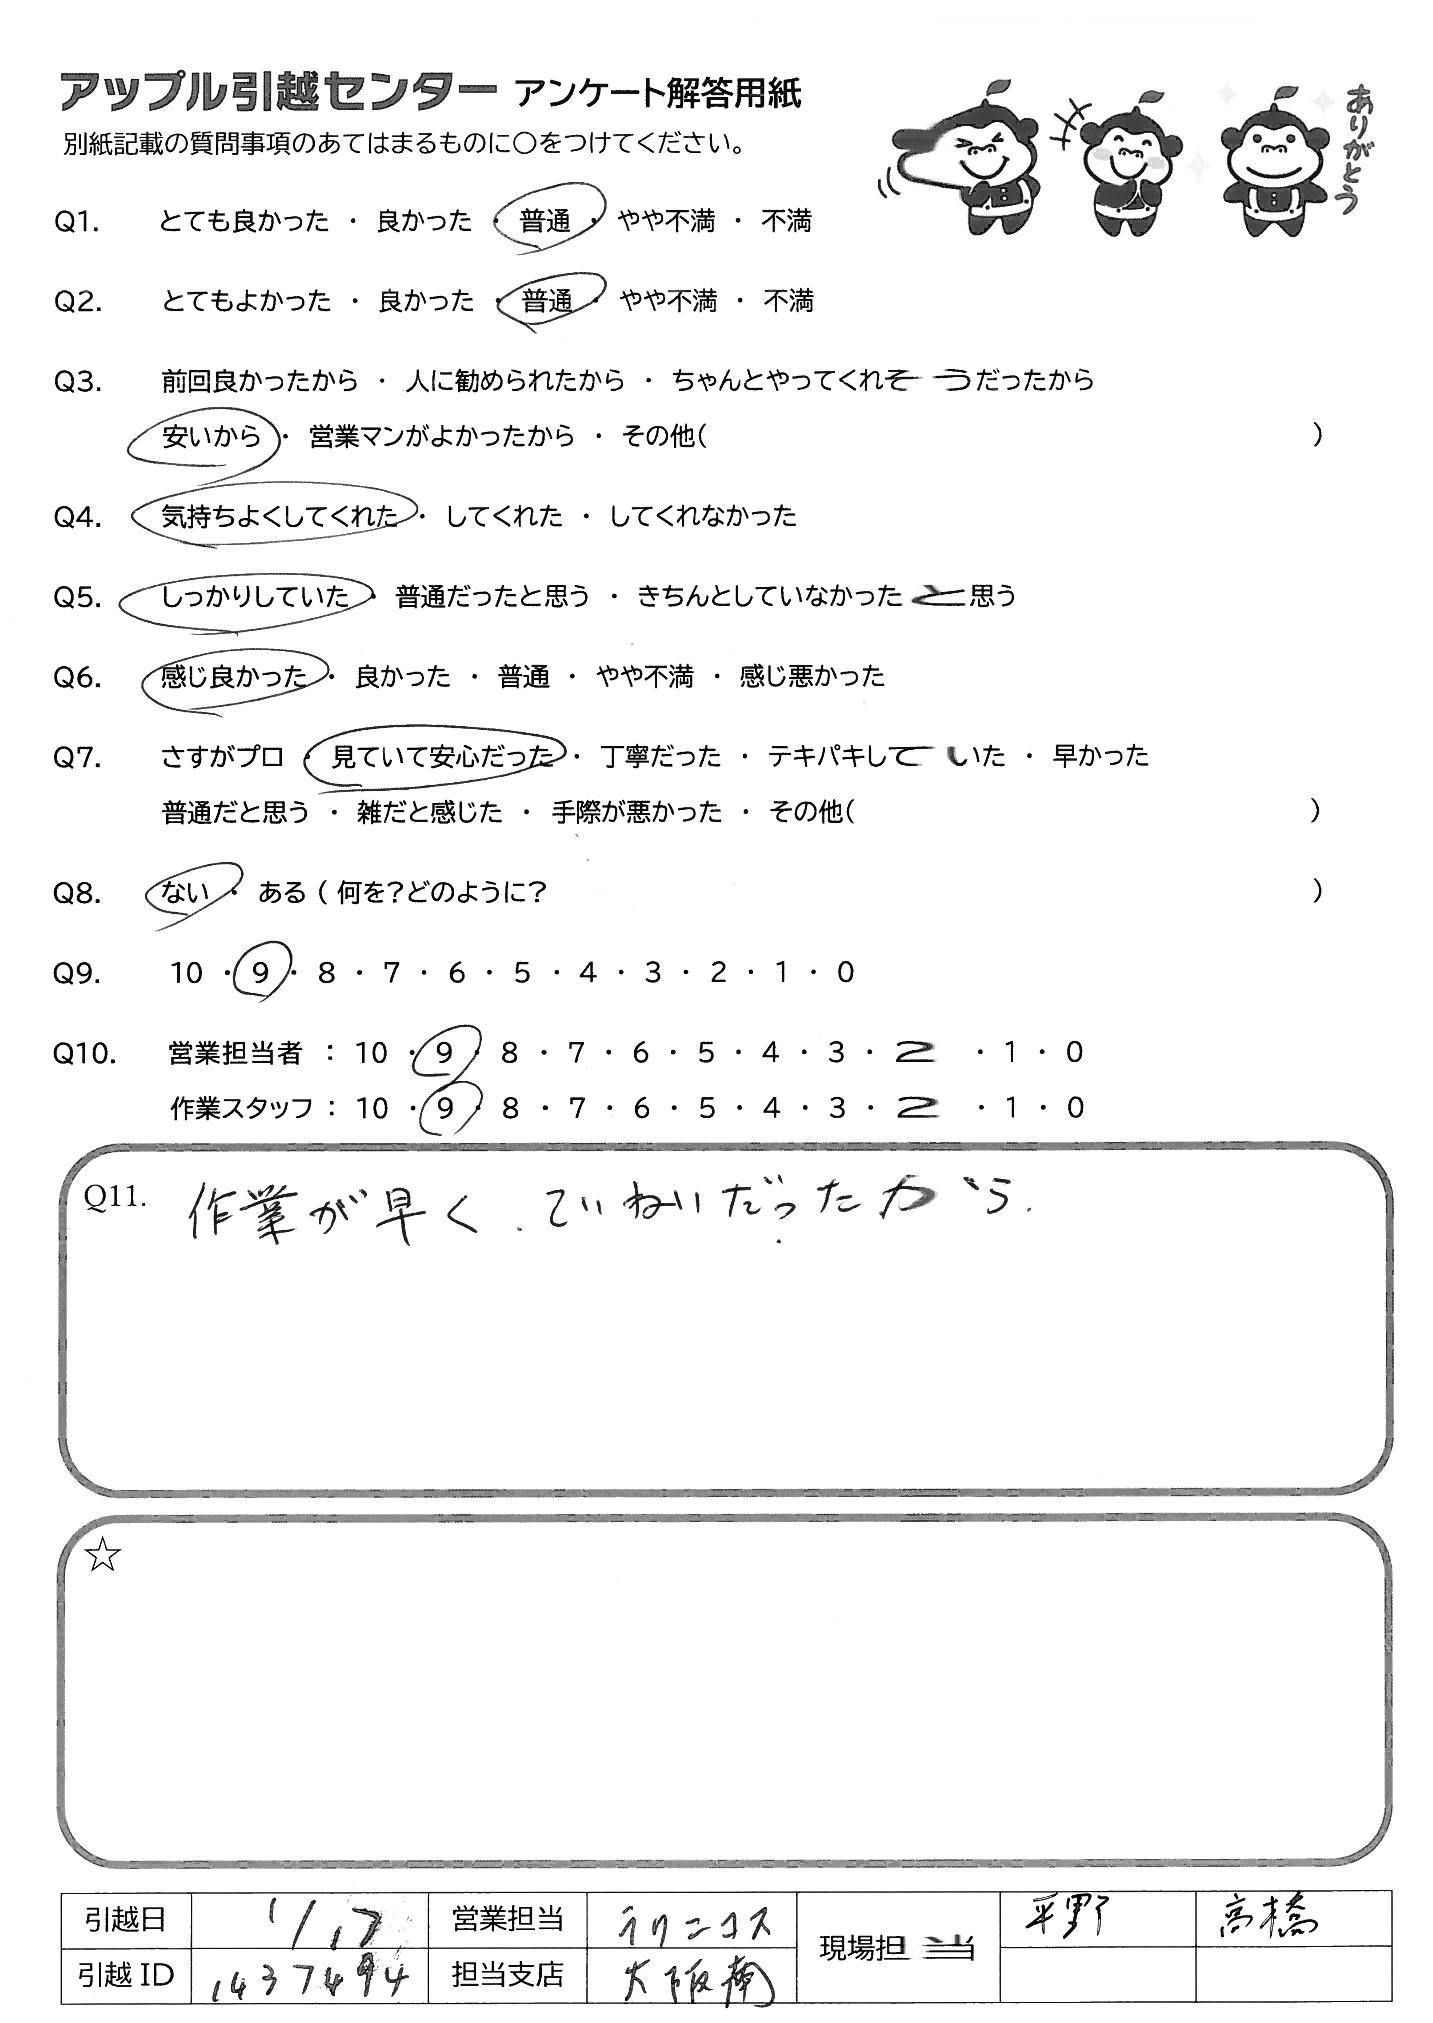 アップル引越センター アンケート解答用紙
ありがとう
別紙記載の質問事項のあてはまるものに○をつけてください。
Q1. とても良かった ・ 良かった ・ 普通 ・ やや不満 ・ 不満
Q2. とてもよかった ・ 良かった ・ 普通 ・ やや不満 ・ 不満
Q3. 前回良かったから ・ 人に勧められたから ・ ちゃんとやってくれそうだったから
安いから ・ 営業マンがよかったから ・ その他( )
Q4. 気持ちよくしてくれた ・ してくれた ・ してくれなかった
Q5. しっかりしていた ・ 普通だったと思う ・ きちんとしていなかったと思う
Q6. 感じ良かった ・ 良かった ・ 普通 ・ やや不満 ・ 感じ悪かった
Q7. さすがプロ ・ 見ていて安心だった ・ 丁寧だった ・ テキパキしていた ・ 早かった
普通だと思う ・ 雑だと感じた ・ 手際が悪かった ・ その他( )
Q8. ない ・ ある ( 何を?どのように? )
Q9. 10 ・ 9 ・ 8 ・ 7 ・ 6 ・ 5 ・ 4 ・ 3 ・ 2 ・ 1 ・ 0
Q10. 営業担当者 : 10 ・ 9 ・ 8 ・ 7 ・ 6 ・ 5 ・ 4 ・ 3 ・ 2 ・ 1 ・ 0
作業スタッフ : 10 ・ 9 ・ 8 ・ 7 ・ 6 ・ 5 ・ 4 ・ 3 ・ 2 ・ 1 ・ 0
Q11. 作業が早く、ていねいだったから.
☆
引越日 1/17 営業担当 現場担当 平野 高橋
引越ID 1437494 担当支店 大阪南